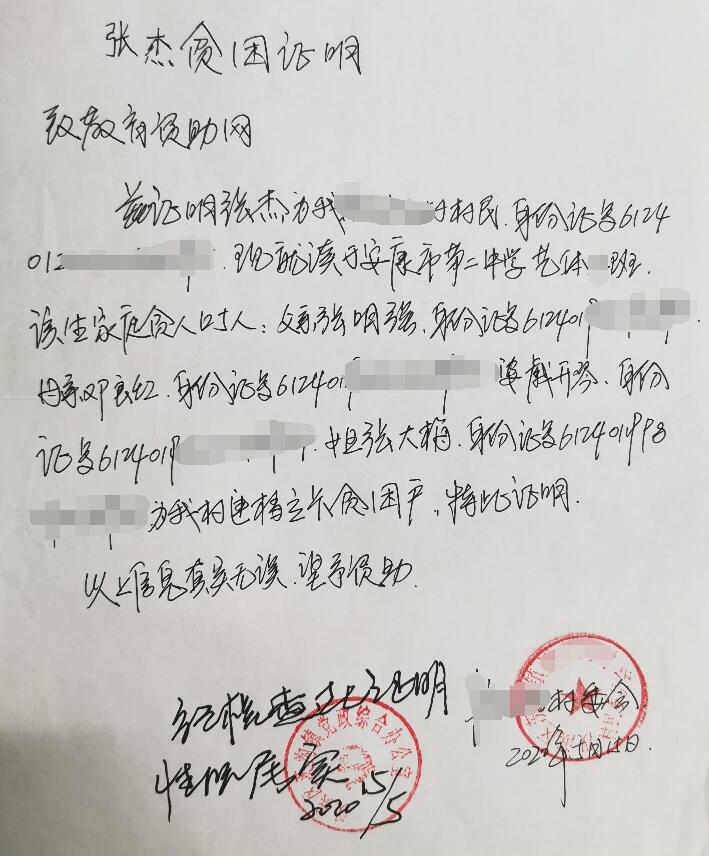 张杰贫困证明
致教育资助网
兹证明张杰为我 村村民.身份证号6124
012 .现就读于安康市第二中学艺体 班.
该生家庭贫人口5人:父亲张明强.身份证号6124019 .
母亲邓宏红.身份证号612401 婆戴开琴.身份
证号6124019 .姐张大梅.身份证号612401998
为我村建档立卡贫困户,特此证明.
以上信息真实无误.望予资助.
经核查此证明
情况属实
2020 15/5
村委会
2020年5月15日.
镇党政综合办公室